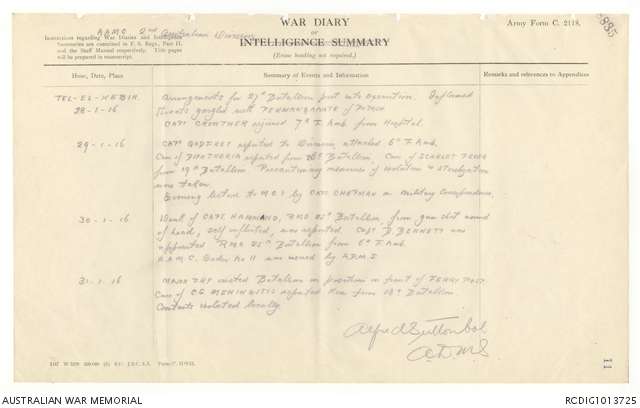 A.A.M.C. 2nd Australian Division
WAR DIARY
OR
INTELLIGENCE SUMMARY
(Erase heading not required.)
Army Form C. 2118.
Instructions regarding War Diaries and Intelligence
Summaries are contained in F. S. Regs., Part II.
and the Staff Manual respectively. Title pages
will be prepared in manuscript.
Hour, Date, Place
Summary of Events and Information
Remarks and references to Appendices
TEL-EL-KEBIR
28-1-16
Arrangements for 27th Battalion put into execution. Inflamed
throats gargled with PERMANGANATE of POTASH.
CAPT CROWTHER rejoined 7th F. Amb from Hospital.
29-1-16
CAPT GODFREY reported to Division attached 6th F. Amb.
Case of DIPHTHERIA reported from 28th Battalion, Case of SCARLET FEVER
from 19th Battalion. Precautionary measures of isolation &
was taken
Evening lecture to by CAPT CHAPMAN on Military Correspondence.
30-1-16
Death of CAPT. HAMMAND, RMO 25th Battalion, from gun shot wound
of head, self inflicted, was reported. Capt D. BENNETT was
appointed RMO 25th Battalion from 6th F. Amb.
A.A.M.C. Order No 11 was issued by A.D.M.S.
31-1-16
visited Battalion in position in front of FERRY POST
Case of C.S. MENINGITIS reported from Battalion
Contacts isolated locally.
Alfred Sutton Col
A.D.M.S
11
AUSTRALIAN WAR MEMORIAL
RCDIG1013725